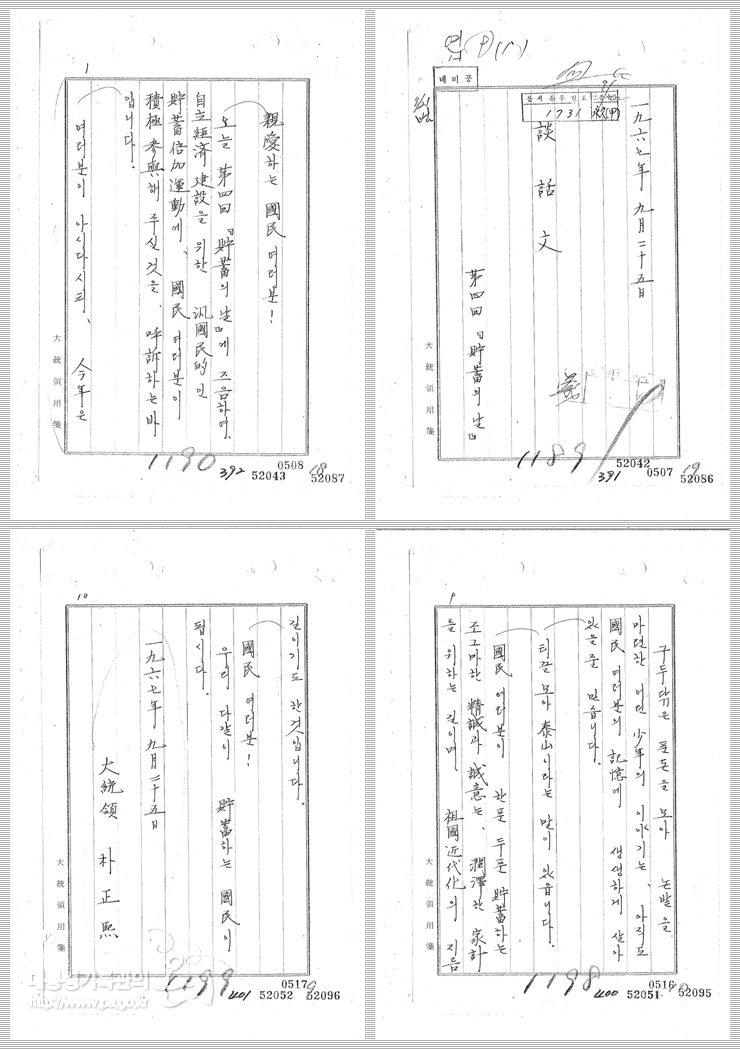 一九六七年 九月二十五日
1731
談話文
第四回「貯蓄의 날」
大統領用箋
1189
391
52042
0507
52086
1
親愛하는 國民 여러분!
오늘 第四回「貯蓄의 날」에 즈음하여,
自立經済建設을 위한 汎國民的인
貯蓄倍加運動에, 國民 여러분이
積極 参與해 주실것을, 呼訴하는바
입니다.
여러분이 아시다시피, 今年은
大統領用箋
1190
392
52043
0508
52087
9
구두닦은 푼돈을 모아 논밭을
마련한 어떤 少年의 이야기는, 아직도
國民 여러분의 記憶에 생생하게 살아
있을 줄 믿습니다.
티끌 모아 泰山이라는 말이 있읍니다.
國民 여러분이 한푼 두푼 貯蓄하는
조그마한 精誠과 誠意는, 潤澤한 家計
를 위하는 길이며, 祖國近代化의 지름
大統領用箋
1198
400
52051
0516
52095
10
길이기도 한것입니다.
國民 여러분!
우리 다같이 貯蓄하는 國民이
됩시다.
一九六七年 九月二十五日
大統領 朴正熙
大統領用箋
1199
401
52052
0517
52096
대통령기록관의
http://www.pa.go.kr